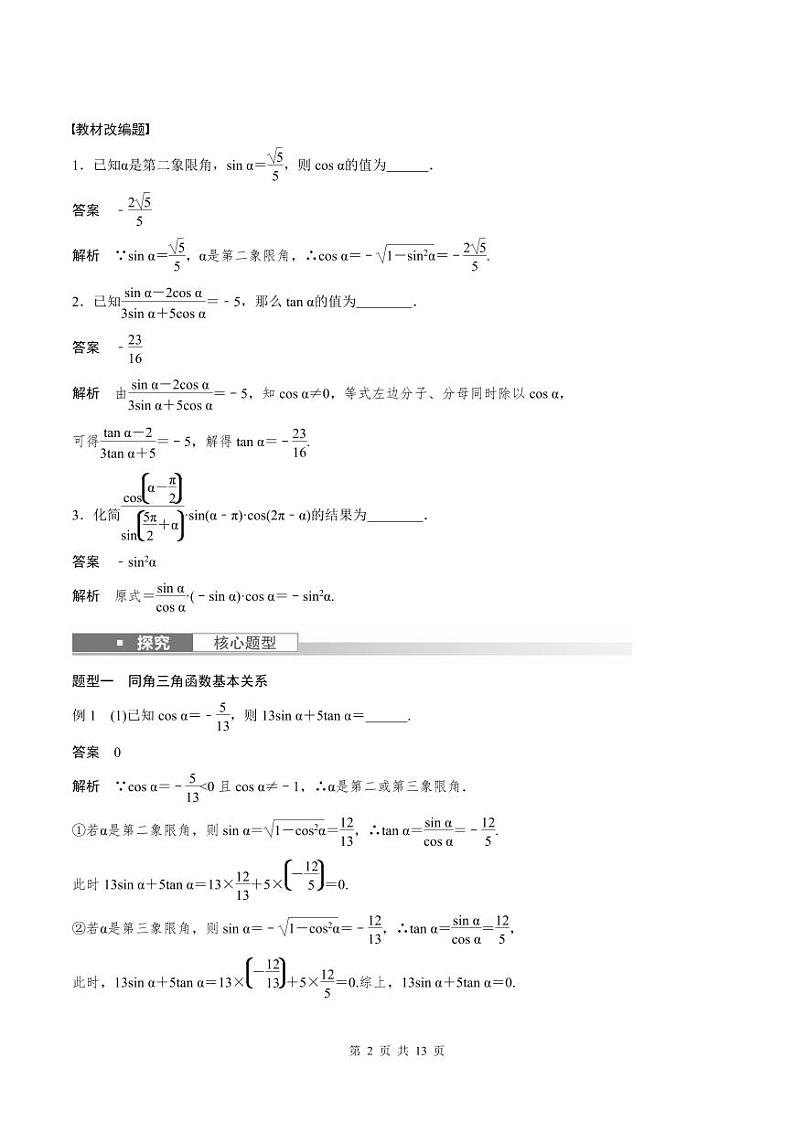 【教材改编题】
1．已知α是第二象限角，sin α＝√5/5，则 cos α的值为______．
答案　－2√5/5
解析　∵sin α＝√5/5，α是第二象限角，∴cos α＝－√(1－sin²α)＝－2√5/5.
2．已知(sin α－2cos α)/(3sin α＋5cos α)＝－5，那么 tan α的值为________．
答案　－23/16
解析　由(sin α－2cos α)/(3sin α＋5cos α)＝－5，知 cos α≠0，等式左边分子、分母同时除以 cos α，
可得(tan α－2)/(3tan α＋5)＝－5，解得 tan α＝－23/16.
3．化简cos(α－π/2)/sin(5π/2＋α)·sin(α－π)·cos(2π－α)的结果为________．
答案　－sin²α
解析　原式＝sin α/cos α·(－sin α)·cos α＝－sin²α.
探究　核心题型
题型一　同角三角函数基本关系
例 1　(1)已知 cos α＝－5/13，则 13sin α＋5tan α＝______.
答案　0
解析　∵cos α＝－5/13<0 且 cos α≠－1，∴α是第二或第三象限角．
①若α是第二象限角，则 sin α＝√(1－cos²α)＝12/13，∴tan α＝sin α/cos α＝－12/5.
此时 13sin α＋5tan α＝13×12/13＋5×(－12/5)＝0.
②若α是第三象限角，则 sin α＝－√(1－cos²α)＝－12/13，∴tan α＝sin α/cos α＝12/5，
此时，13sin α＋5tan α＝13×(－12/13)＋5×12/5＝0.综上，13sin α＋5tan α＝0.
第 2 页 共 13 页